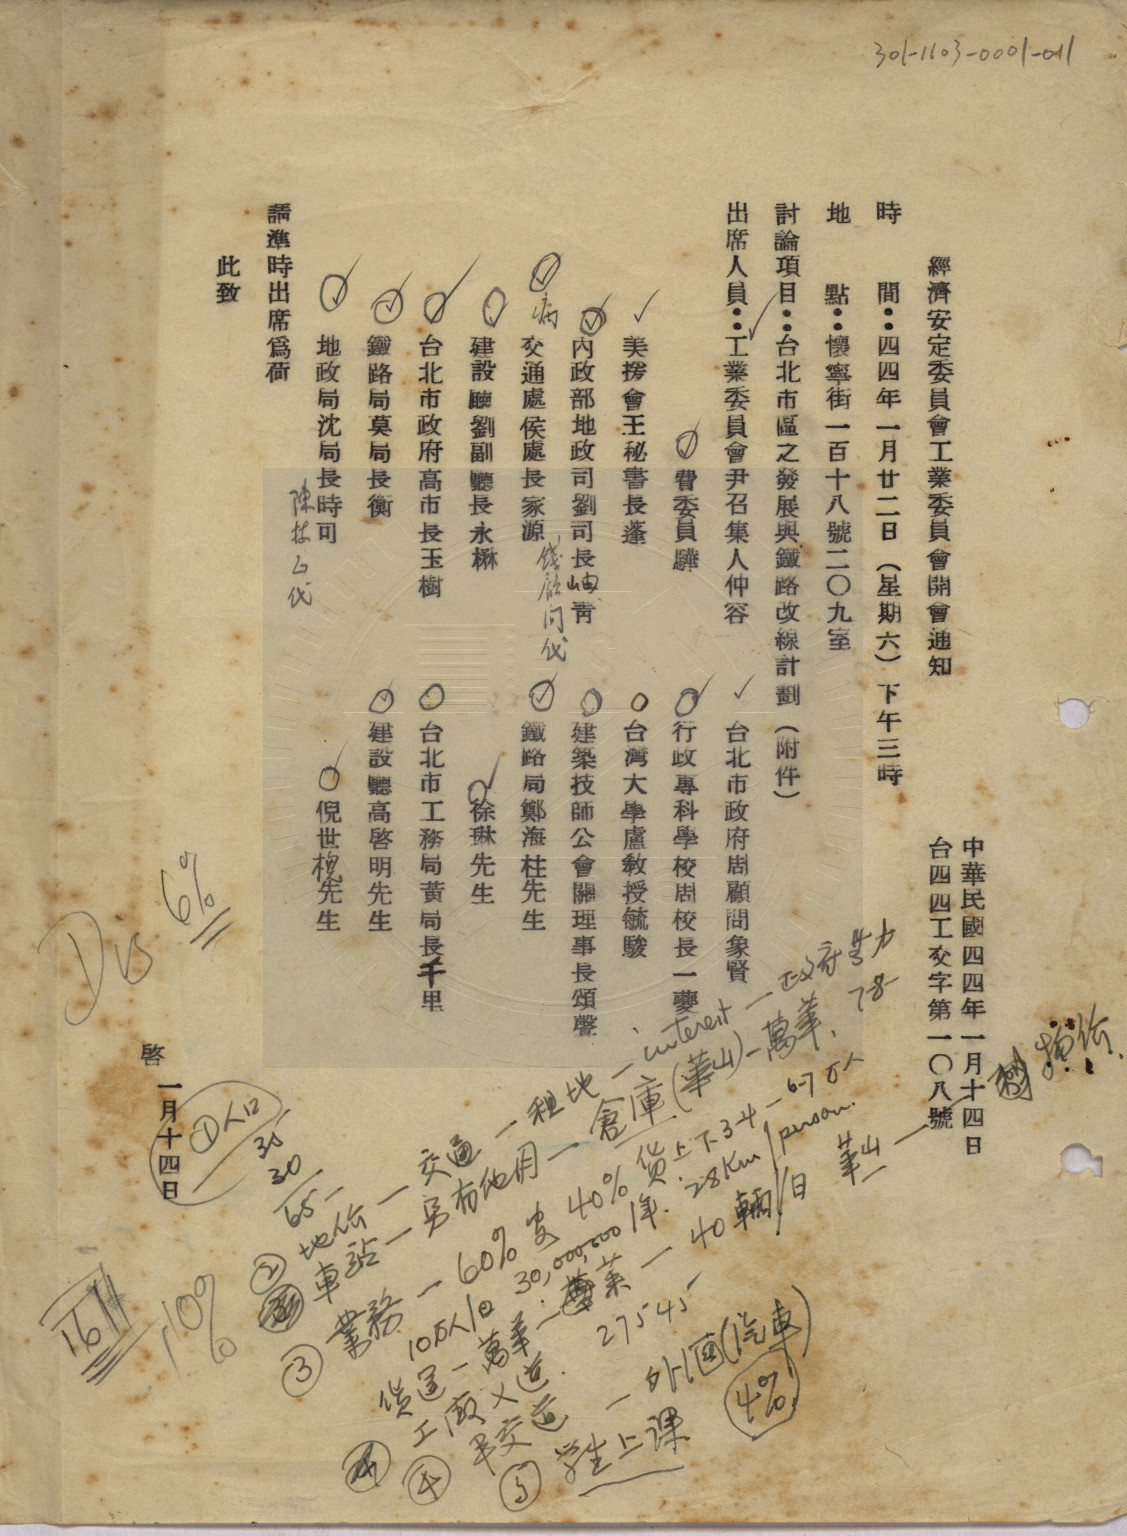 301-1103-0001-011
經濟安定委員會工業委員會開會通知
中華民國四四年一月十四日
台四四工交字第一〇八號
時間：四四年一月廿二日（星期六）下午三時
地點：懷寧街一百十八號二〇九室
討論項目：台北市區之發展與鐵路改線計劃（附件）
出席人員：工業委員會尹召集人仲容
台北市政府周顧問象賢
費委員驊
行政專科學校周校長一夔
美援會王秘書長蓬
台灣大學盧教授毓駿
內政部地政司劉司長岫青
建築技師公會關理事長頌聲
交通處侯處長家源
病
錢顧問代
鐵路局鄭海柱先生
建設廳劉副廳長永楙
徐琳先生
台北市政府高市長玉樹
台北市工務局黃局長千里
鐵路局莫局長衡
建設廳高啓明先生
地政局沈局長時可
倪世槐先生
請準時出席為荷
此致
啓
一月十四日
6%
10%
1611
①人口
35
30
65
② 地价 — 交通 — 租地 — interest — 政府努力
車站 — 另有他用 — 倉庫(華山)—萬華，7-8-
③ 業務 — 60% 客 40% 貨上下3-4 — 6-7万人
10万人/日 30,000,000/年. 28Km/person.
貨運 — 萬華 — 40輛/日 華山 —
工廠
27545-
④ 平交道
⑤ 学生上課 — 外國(汽車)
4%